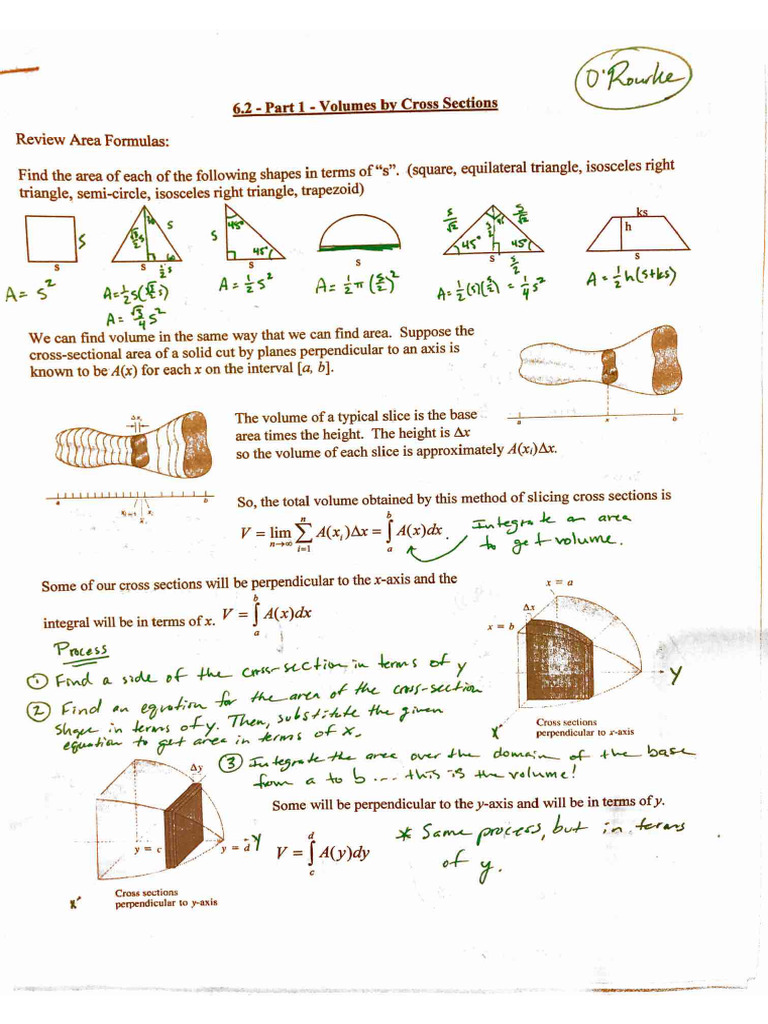 O'Rourke
6.2 - Part 1 - Volumes by Cross Sections
Review Area Formulas:
Find the area of each of the following shapes in terms of “s”. (square, equilateral triangle, isosceles right
triangle, semi-circle, isosceles right triangle, trapezoid)
s s
A = s²
√3/2 s s 60 s ½s
A = ½s(√3/2 s)
A = √3/4 s²
s 45° 45° s
A = ½s²
s
A = ½π(s/2)²
s/√2 s/√2 45° 45° s/2 s s/2
A = ½(s)(s/2) = ¼s²
ks h s
A = ½h(s+ks)
We can find volume in the same way that we can find area. Suppose the
cross-sectional area of a solid cut by planes perpendicular to an axis is
known to be A(x) for each x on the interval [a, b].
a x b
The volume of a typical slice is the base
area times the height. The height is Δx
so the volume of each slice is approximately A(xᵢ)Δx.
Δxᵢ
a xᵢ b
So, the total volume obtained by this method of slicing cross sections is
V = lim n→∞ ∑ i=1 n A(xᵢ)Δx = ∫ a b A(x)dx.
Integrate an area
to get volume.
Some of our cross sections will be perpendicular to the x-axis and the
integral will be in terms of x. V = ∫ a b A(x)dx
x = a
Δx
x = b
y
x
Cross sections
perpendicular to x-axis
Process
① Find a side of the cross-section in terms of y
② Find an equation for the area of the cross-section
shape in terms of y. Then, substitute the given
equation to get area in terms of x.
③ Integrate the area over the domain of the base
from a to b ... this is the volume!
Δy
y = c y = d y
x
Cross sections
perpendicular to y-axis
Some will be perpendicular to the y-axis and will be in terms of y.
V = ∫ c d A(y)dy
* Same process, but in terms
of y.